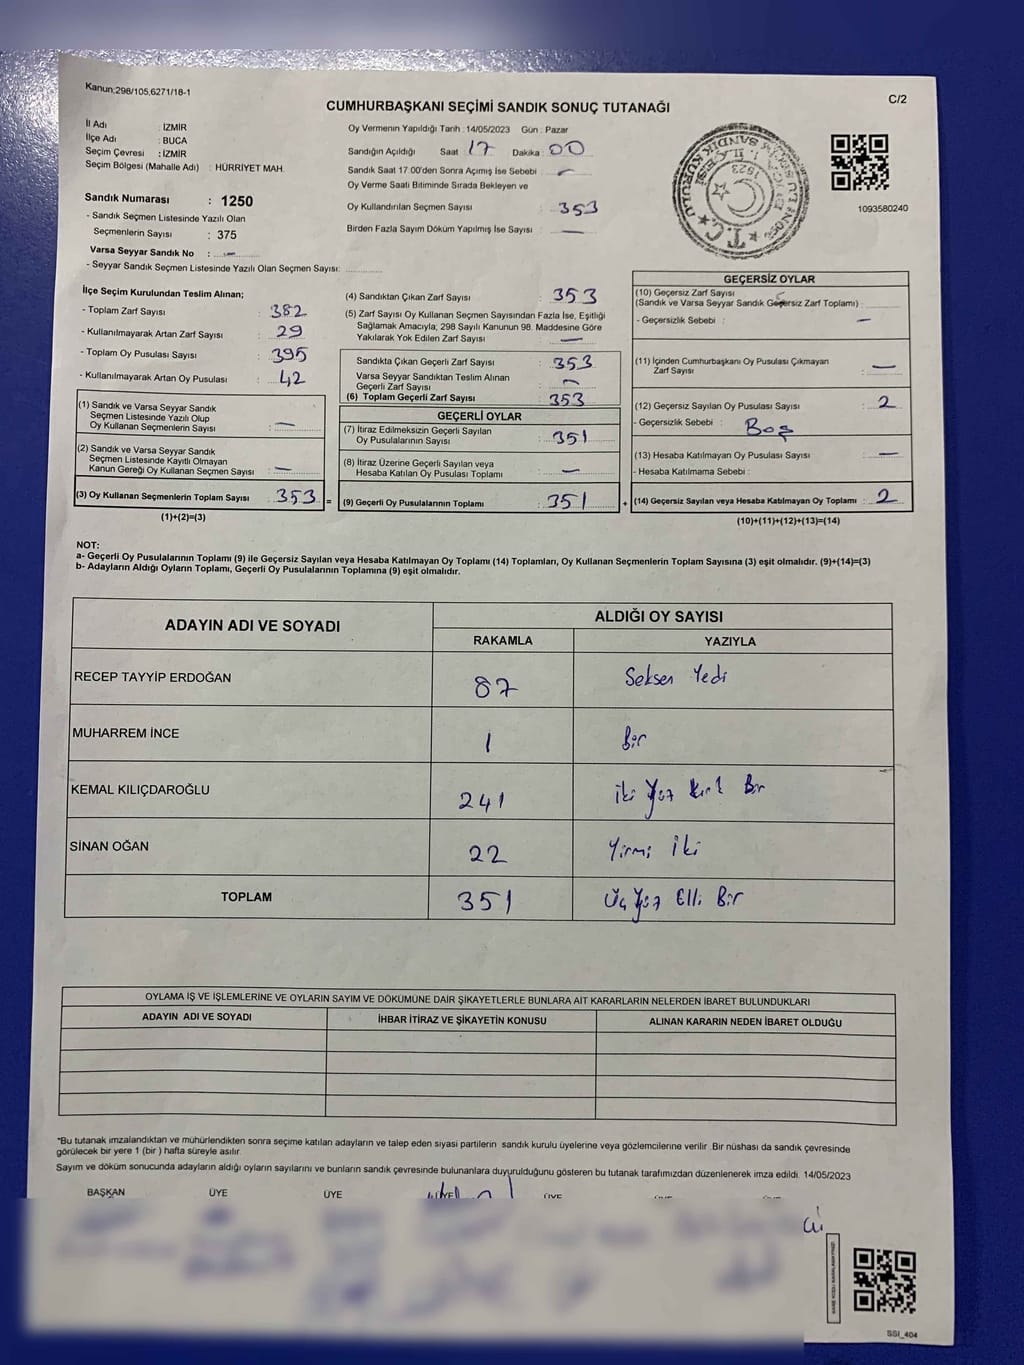 Kanun:298/105,6271/18-1
C/2
CUMHURBAŞKANI SEÇİMİ SANDIK SONUÇ TUTANAĞI
İl Adı : İZMİR
İlçe Adı : BUCA
Seçim Çevresi : İZMİR
Seçim Bölgesi (Mahalle Adı) : HÜRRİYET MAH.
Sandık Numarası : 1250
- Sandık Seçmen Listesinde Yazılı Olan
Seçmenlerin Sayısı : 375
Varsa Seyyar Sandık No : —
- Seyyar Sandık Seçmen Listesinde Yazılı Olan Seçmen Sayısı:
Oy Vermenin Yapıldığı Tarih : 14/05/2023 Gün : Pazar
Sandığın Açıldığı Saat 17 Dakika : 00
Sandık Saat 17.00'den Sonra Açımış İse Sebebi : —
Oy Verme Saati Bitiminde Sırada Bekleyen ve
Oy Kullandırılan Seçmen Sayısı : 353
Birden Fazla Sayım Döküm Yapılmış İse Sayısı : —
1093580240
İlçe Seçim Kurulundan Teslim Alınan;
- Toplam Zarf Sayısı : 382
- Kullanılmayarak Artan Zarf Sayısı : 29
- Toplam Oy Pusulası Sayısı : 395
- Kullanılmayarak Artan Oy Pusulası : 42
(1) Sandık ve Varsa Seyyar Sandık
Seçmen Listesinde Yazılı Olup
Oy Kullanan Seçmenlerin Sayısı : —
(2) Sandık ve Varsa Seyyar Sandık
Seçmen Listesinde Kayıtlı Olmayan
Kanun Gereği Oy Kullanan Seçmen Sayısı : —
(3) Oy Kullanan Seçmenlerin Toplam Sayısı : 353 =
(1)+(2)=(3)
(4) Sandıktan Çıkan Zarf Sayısı : 353
(5) Zarf Sayısı Oy Kullanan Seçmen Sayısından Fazla İse, Eşitliği
Sağlamak Amacıyla, 298 Sayılı Kanunun 98. Maddesine Göre
Yakılarak Yok Edilen Zarf Sayısı : —
Sandıkta Çıkan Geçerli Zarf Sayısı : 353
Varsa Seyyar Sandıktan Teslim Alınan
Geçerli Zarf Sayısı : —
(6) Toplam Geçerli Zarf Sayısı : 353
GEÇERLİ OYLAR
(7) İtiraz Edilmeksizin Geçerli Sayılan
Oy Pusulalarının Sayısı : 351
(8) İtiraz Üzerine Geçerli Sayılan veya
Hesaba Katılan Oy Pusulası Toplamı : —
(9) Geçerli Oy Pusulalarının Toplamı : 351 +
GEÇERSİZ OYLAR
(10) Geçersiz Zarf Sayısı
(Sandık ve Varsa Seyyar Sandık Geçersiz Zarf Toplamı) :
- Geçersizlik Sebebi : —
(11) İçinden Cumhurbaşkanı Oy Pusulası Çıkmayan
Zarf Sayısı : —
(12) Geçersiz Sayılan Oy Pusulası Sayısı : 2
- Geçersizlik Sebebi : Boş
(13) Hesaba Katılmayan Oy Pusulası Sayısı : —
- Hesaba Katılmama Sebebi :
(14) Geçersiz Sayılan veya Hesaba Katılmayan Oy Toplamı : 2
(10)+(11)+(12)+(13)=(14)
NOT:
a- Geçerli Oy Pusulalarının Toplamı (9) ile Geçersiz Sayılan veya Hesaba Katılmayan Oy Toplamı (14) Toplamları, Oy Kullanan Seçmenlerin Toplam Sayısına (3) eşit olmalıdır. (9)+(14)=(3)
b- Adayların Aldığı Oyların Toplamı, Geçerli Oy Pusulalarının Toplamına (9) eşit olmalıdır.
ADAYIN ADI VE SOYADI
ALDIĞI OY SAYISI
RAKAMLA YAZIYLA
RECEP TAYYİP ERDOĞAN 87 Seksen Yedi
MUHARREM İNCE 1 Bir
KEMAL KILIÇDAROĞLU 241 İki Yüz Kırk Bir
SİNAN OĞAN 22 Yirmi İki
TOPLAM 351 Üç Yüz Elli Bir
OYLAMA İŞ VE İŞLEMLERİNE VE OYLARIN SAYIM VE DÖKÜMÜNE DAİR ŞİKAYETLERLE BUNLARA AİT KARARLARIN NELERDEN İBARET BULUNDUKLARI
ADAYIN ADI VE SOYADI İHBAR İTİRAZ VE ŞİKAYETİN KONUSU ALINAN KARARIN NEDEN İBARET OLDUĞU
*Bu tutanak imzalandıktan ve mühürlendikten sonra seçime katılan adayların ve talep eden siyasi partilerin sandık kurulu üyelerine veya gözlemcilerine verilir. Bir nüshası da sandık çevresinde
görülecek bir yere 1 (bir ) hafta süreyle asılır.
Sayım ve döküm sonucunda adayların aldığı oyların sayılarını ve bunların sandık çevresinde bulunanlara duyurulduğunu gösteren bu tutanak tarafımızdan düzenlenerek imza edildi. 14/05/2023
BAŞKAN ÜYE ÜYE ÜYE ÜYE
SSI_404